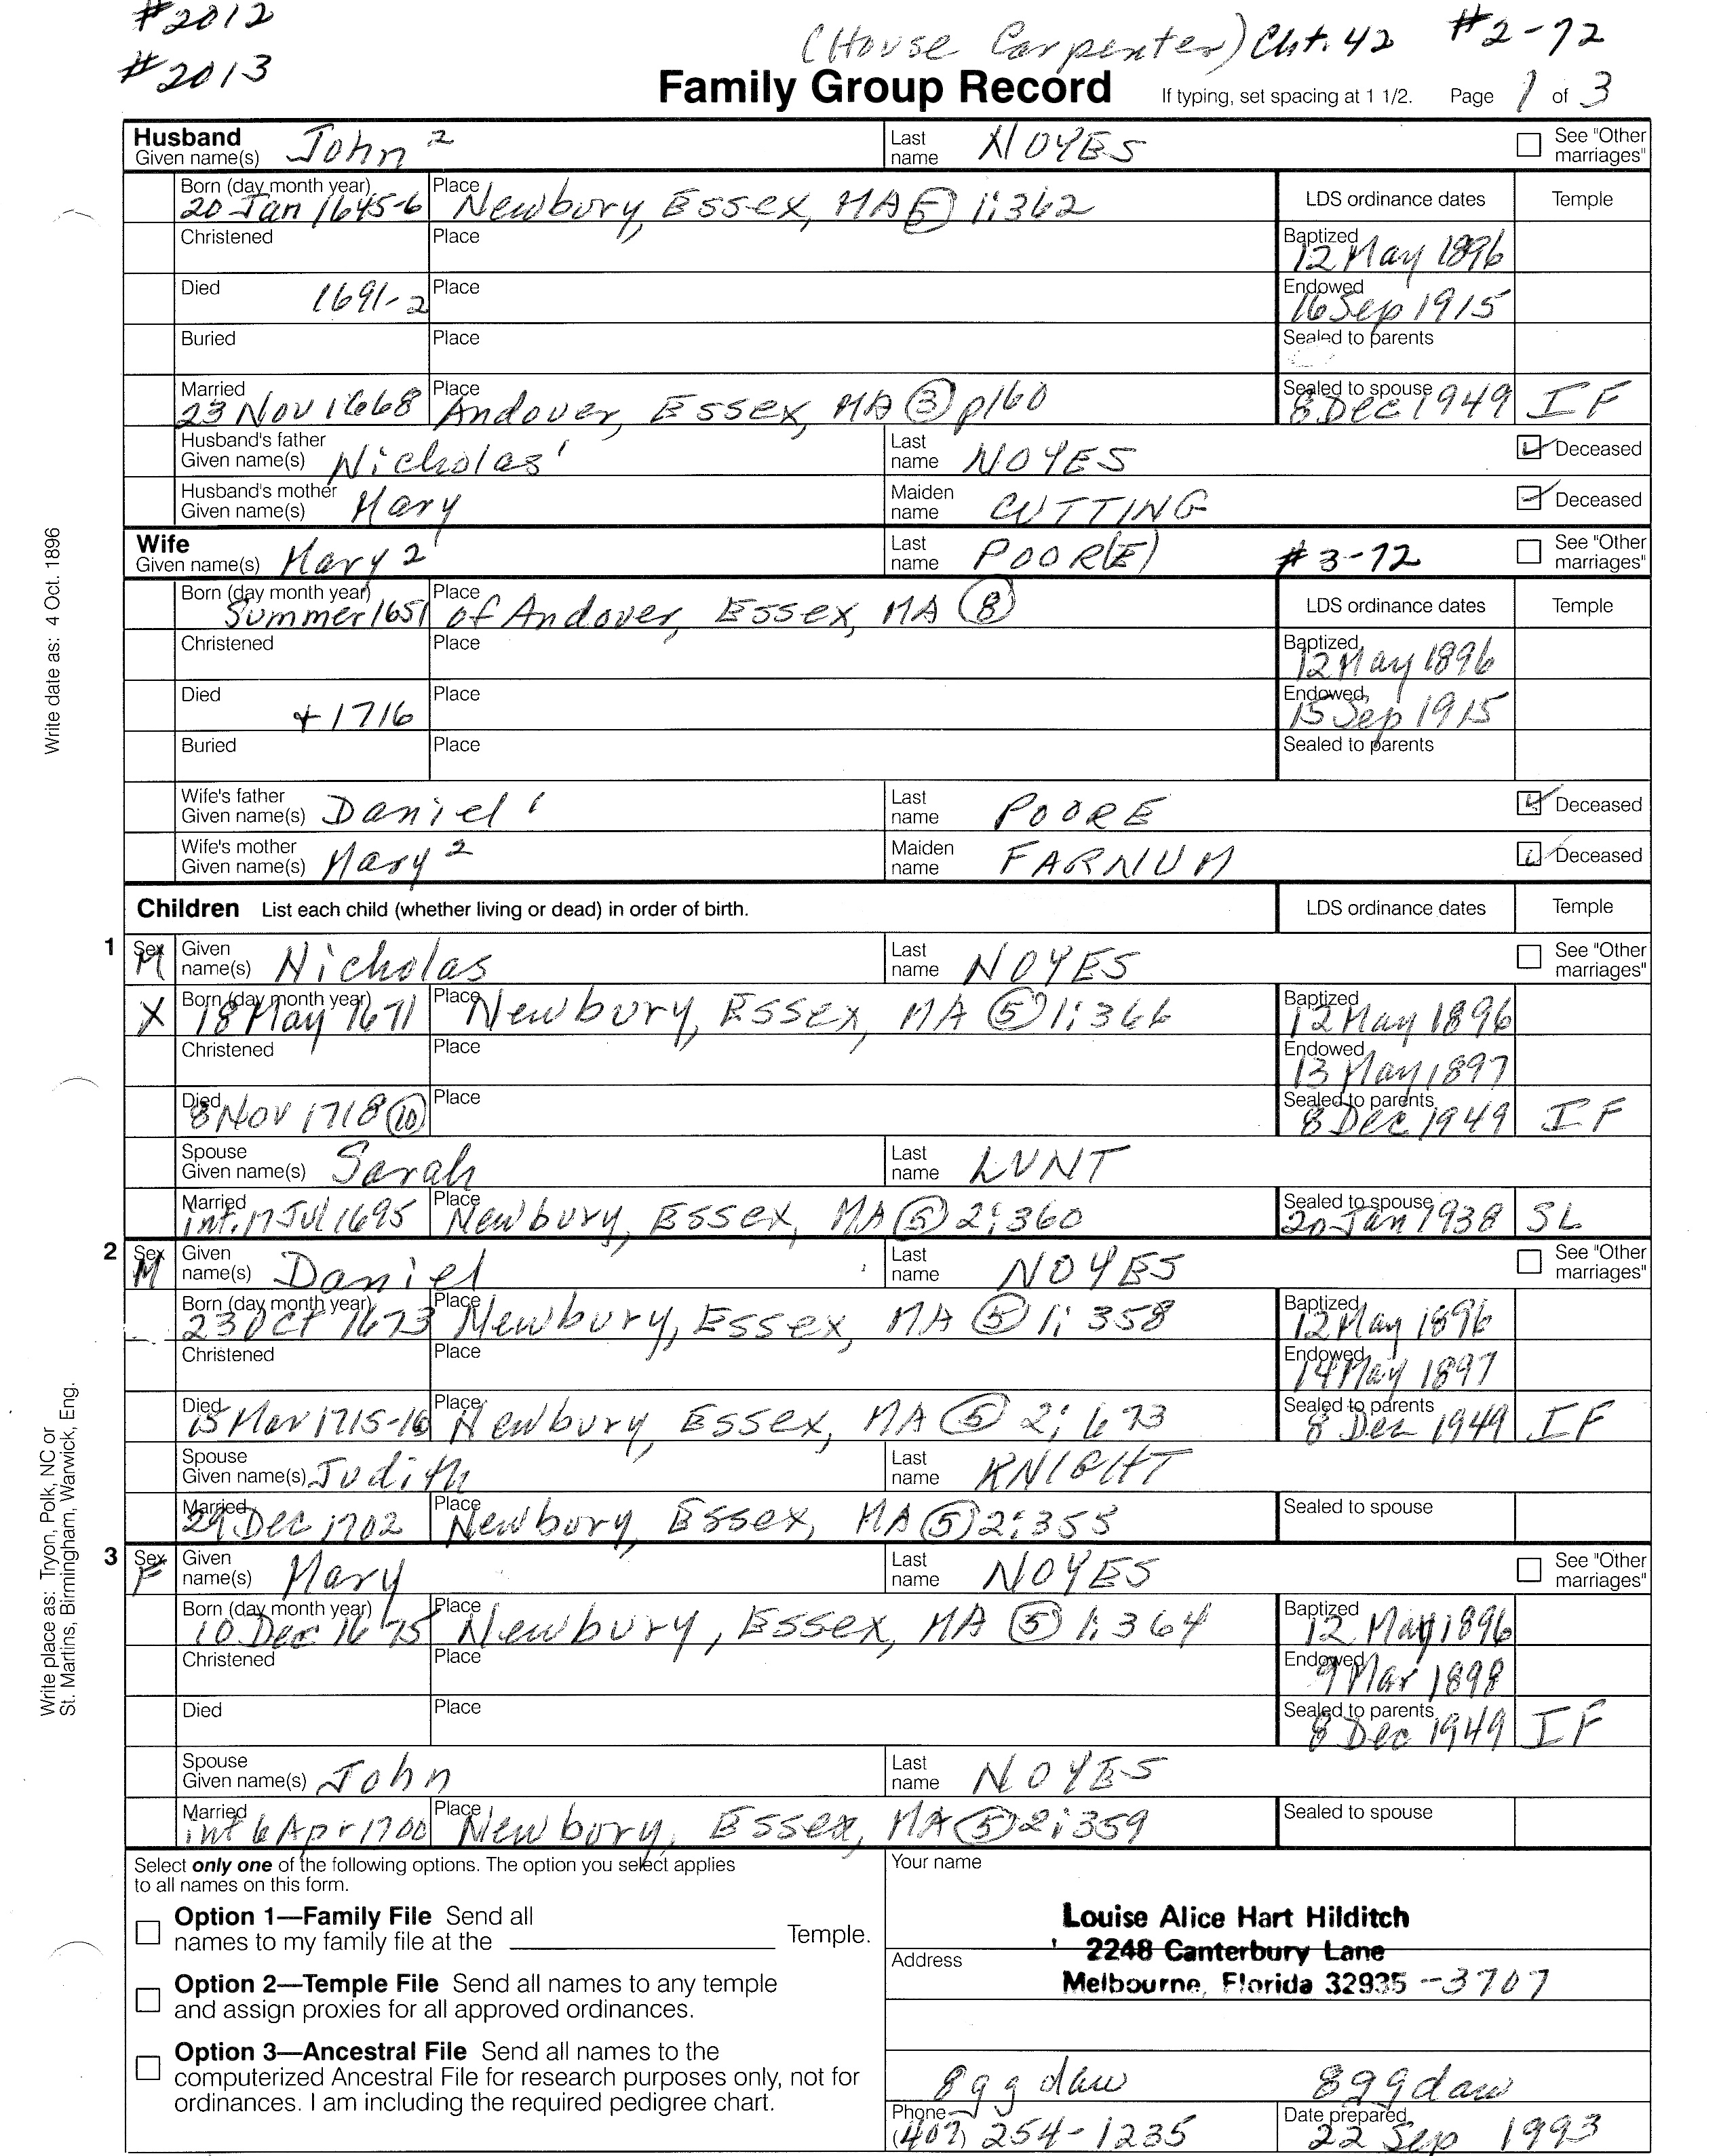 #2012
(House Carpenter) Cht. 42 #2-72
#2013
Family Group Record If typing, set spacing at 1 1/2. Page 1 of 3
Husband Given name(s) John 2 Last name NOYES See "Other marriages"
Born (day month year) 20 Jan 1645-6 Place Newbury, Essex, MA (5) 1:362 LDS ordinance dates Temple
Christened Place Baptized 12 May 1896
Died 1691-2 Place Endowed 16 Sep 1915
Buried Place Sealed to parents
Married 23 Nov 1668 Place Andover, Essex, MA (3) p160 Sealed to spouse 8 Dec 1949 IF
Husband's father Given name(s) Nicholas 1 Last name NOYES Deceased
Husband's mother Given name(s) Mary Maiden name CUTTING Deceased
Wife Given name(s) Mary 2 Last name POOR(E) #3-72 See "Other marriages"
Born (day month year) Summer 1651 Place of Andover, Essex, MA (8) LDS ordinance dates Temple
Christened Place Baptized 12 May 1896
Died + 1716 Place Endowed 15 Sep 1915
Buried Place Sealed to parents
Wife's father Given name(s) Daniel 1 Last name POORE Deceased
Wife's mother Given name(s) Mary 2 Maiden name FARNUM Deceased
Children List each child (whether living or dead) in order of birth. LDS ordinance dates Temple
1 Sex M Given name(s) Nicholas Last name NOYES See "Other marriages"
X Born (day month year) 18 May 1671 Place Newbury, Essex, MA (5) 1:366 Baptized 12 May 1896
Christened Place Endowed 13 May 1897
Died 8 Nov 1718 (10) Place Sealed to parents 8 Dec 1949 IF
Spouse Given name(s) Sarah Last name LUNT
Married int. 17 Jul 1695 Place Newbury, Essex, MA (5) 2:360 Sealed to spouse 20 Jan 1938 SL
2 Sex M Given name(s) Daniel Last name NOYES See "Other marriages"
Born (day month year) 23 Oct 1673 Place Newbury, Essex, MA (5) 1:358 Baptized 12 May 1896
Christened Place Endowed 14 May 1897
Died 15 Mar 1715-16 Place Newbury, Essex, MA (5) 2:673 Sealed to parents 8 Dec 1949 IF
Spouse Given name(s) Judith Last name KNIGHT
Married 29 Dec 1702 Place Newbury, Essex, MA (5) 2:355 Sealed to spouse
3 Sex F Given name(s) Mary Last name NOYES See "Other marriages"
Born (day month year) 10 Dec 1675 Place Newbury, Essex, MA (5) 1:364 Baptized 12 May 1896
Christened Place Endowed 9 Mar 1898
Died Place Sealed to parents 8 Dec 1949 IF
Spouse Given name(s) John Last name NOYES
Married int 6 Apr 1700 Place Newbury, Essex, MA (5) 2:359 Sealed to spouse
Select only one of the following options. The option you select applies
to all names on this form.
Option 1—Family File Send all
names to my family file at the Temple.
Option 2—Temple File Send all names to any temple
and assign proxies for all approved ordinances.
Option 3—Ancestral File Send all names to the
computerized Ancestral File for research purposes only, not for
ordinances. I am including the required pedigree chart.
Your name
Louise Alice Hart Hilditch
Address 2248 Canterbury Lane
Melbourne, Florida 32935 -3707
8ggdau 8ggdau
Phone (407) 254-1235 Date prepared 22 Sep 1993
Write date as: 4 Oct. 1896
Write place as: Tryon, Polk, NC or
St. Martins, Birmingham, Warwick, Eng.